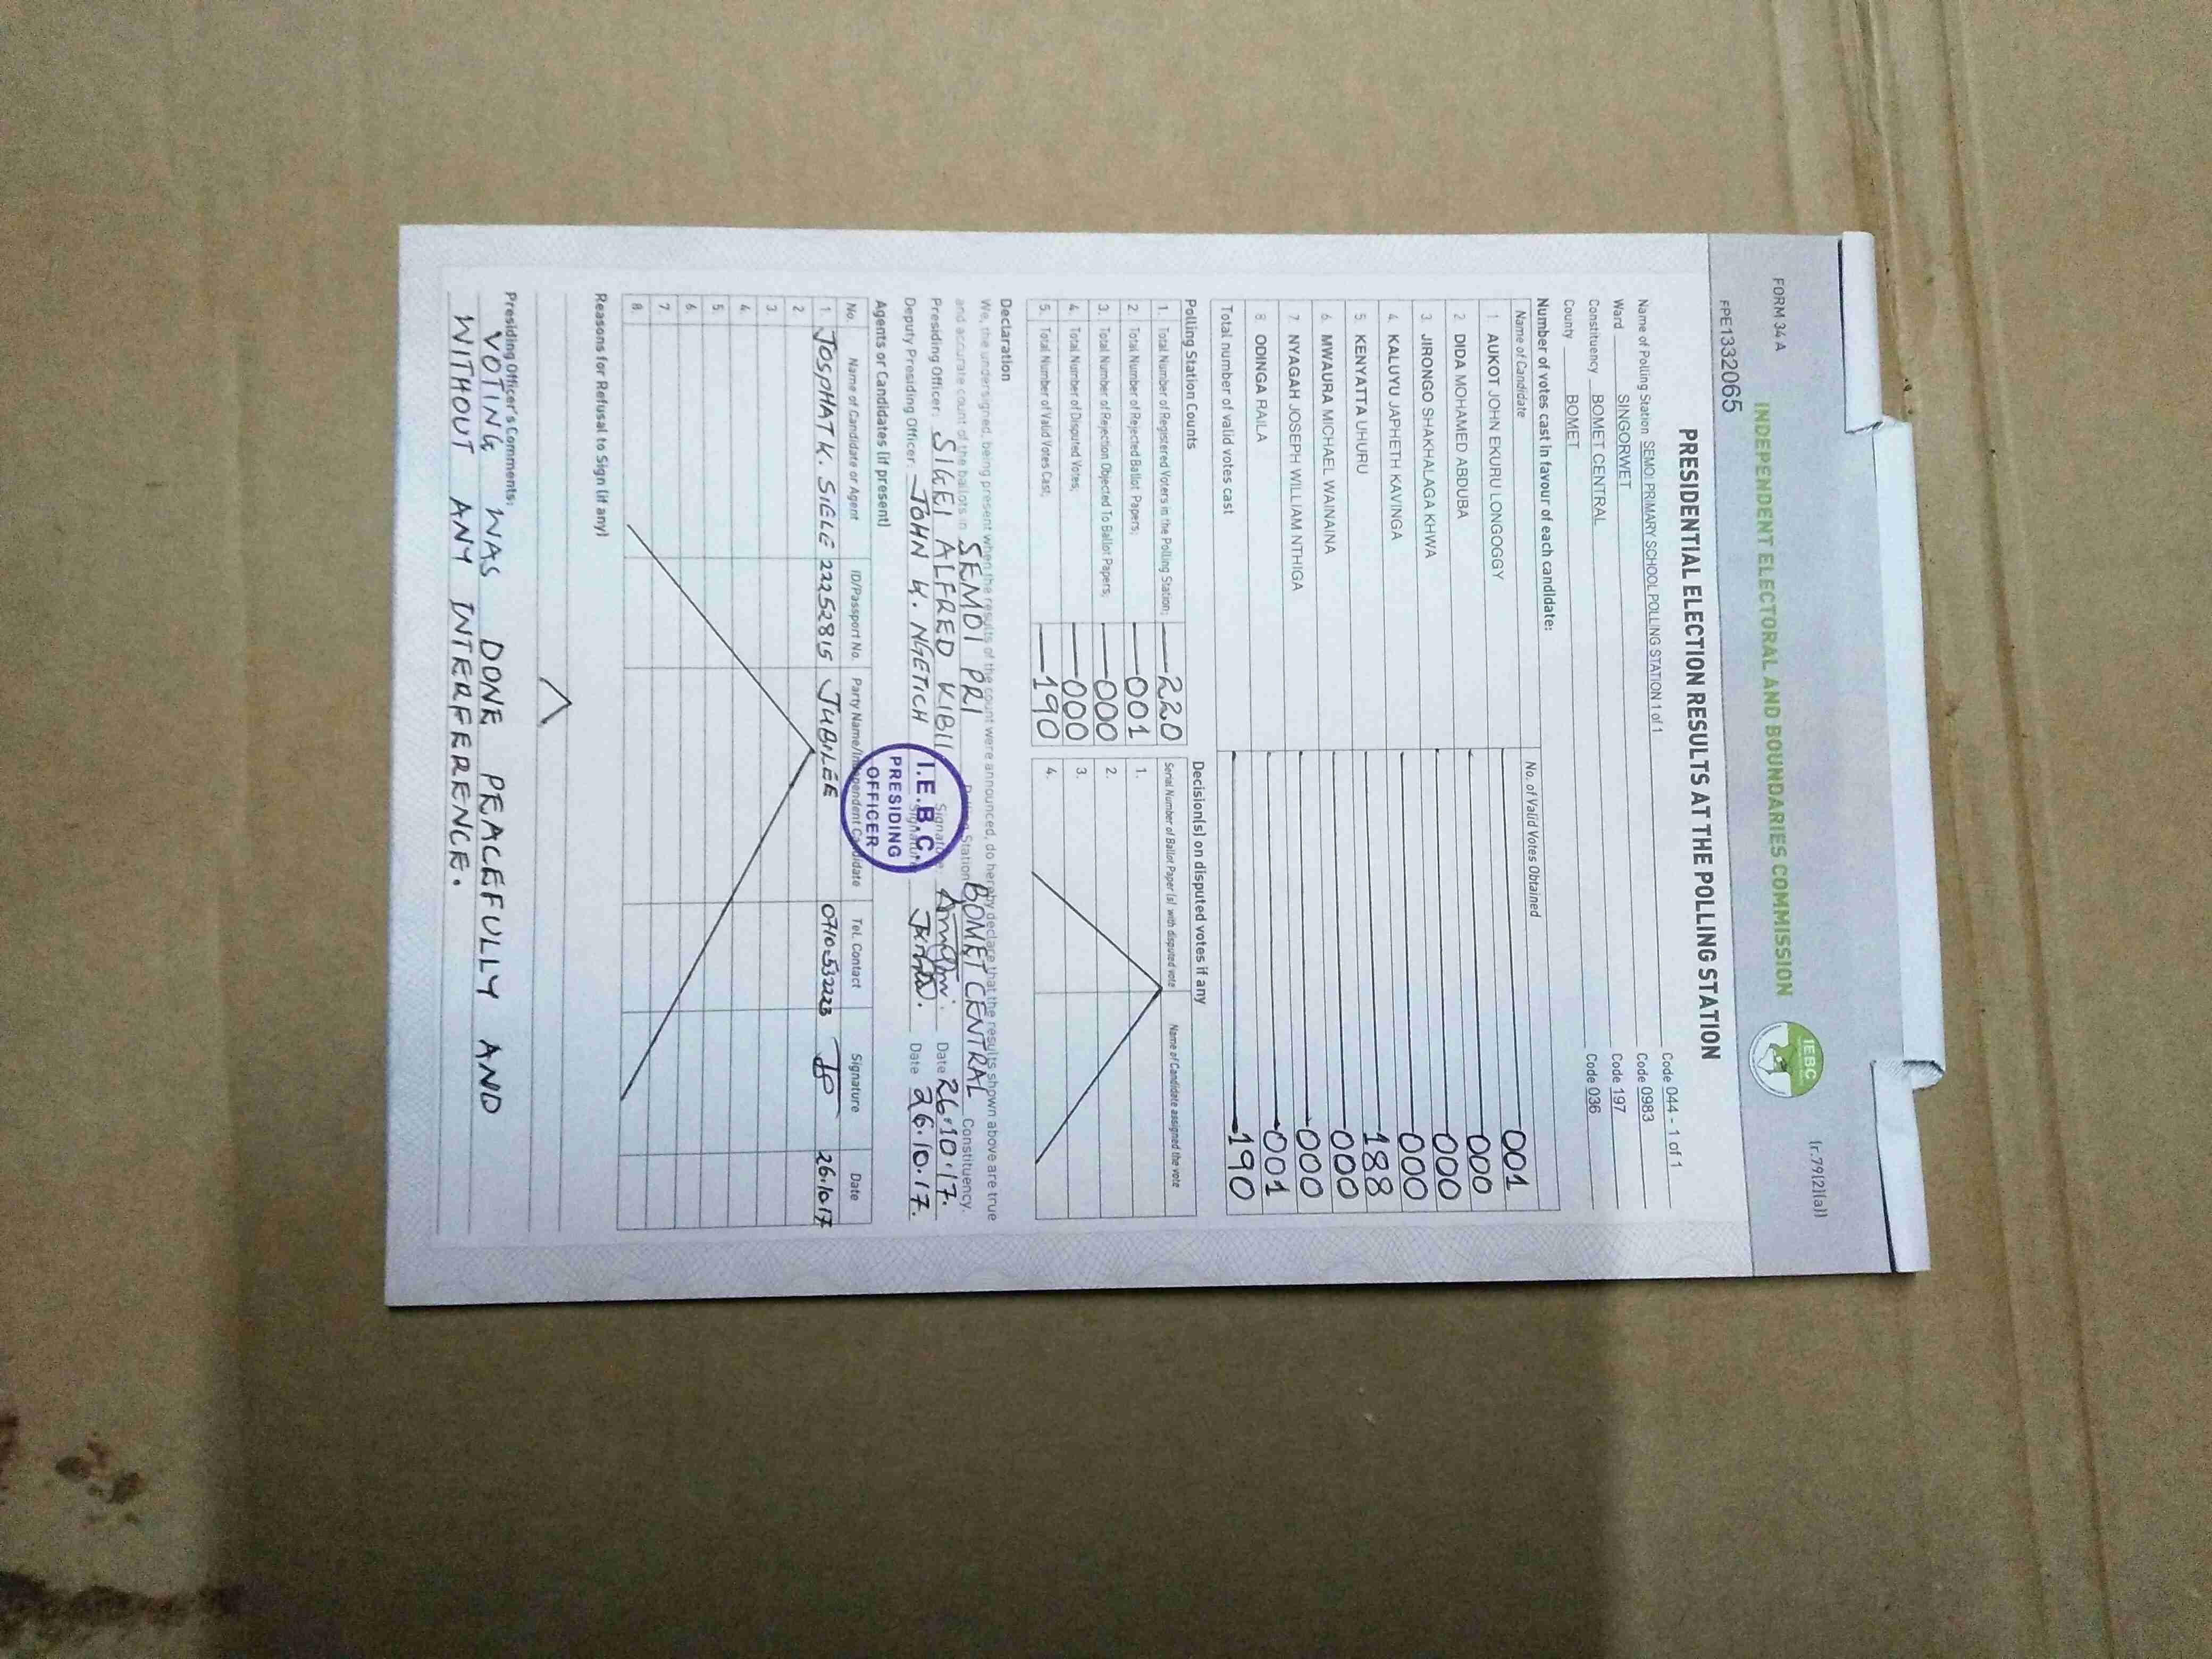 FORM 34 A
(r.79(2)(a))
INDEPENDENT ELECTORAL AND BOUNDARIES COMMISSION
IEBC
FPE1332065
PRESIDENTIAL ELECTION RESULTS AT THE POLLING STATION
Name of Polling Station SEMOI PRIMARY SCHOOL POLLING STATION 1 of 1 Code 044 - 1 of 1
Ward SINGORWET Code 0983
Constituency BOMET CENTRAL Code 197
County BOMET Code 036
Number of votes cast in favour of each candidate:
Name of Candidate No. of Valid Votes Obtained
1 AUKOT JOHN EKURU LONGOGGY 001
2 DIDA MOHAMED ABDUBA 000
3. JIRONGO SHAKHALAGA KHWA 000
4. KALUYU JAPHETH KAVINGA 000
5. KENYATTA UHURU 188
6. MWAURA MICHAEL WAINAINA 000
7 NYAGAH JOSEPH WILLIAM NTHIGA 000
8. ODINGA RAILA 001
Total number of valid votes cast 190
Polling Station Counts
1. Total Number of Registered Voters in the Polling Station; 220
2. Total Number of Rejected Ballot Papers; 001
3. Total Number of Rejection Objected To Ballot Papers; 000
4. Total Number of Disputed Votes; 000
5. Total Number of Valid Votes Cast; 190
Decision(s) on disputed votes if any
Serial Number of Ballot Paper(s) with disputed vote Name of Candidate assigned the vote
1.
2.
3.
4.
Declaration
We, the undersigned, being present when the results of the count were announced, do hereby declare that the results shown above are true
and accurate count of the ballots in SEMOI PRI Polling Station BOMET CENTRAL Constituency.
Presiding Officer: SIGEI ALFRED KIBII Signature Date 26.10.17.
Deputy Presiding Officer: JOHN K. NGETICH Signature Date 26.10.17.
I.E.B.C
PRESIDING
OFFICER
Agents or Candidates (if present)
No. Name of Candidate or Agent ID/Passport No. Party Name/Independent Candidate Tel. Contact Signature Date
1 JOSPHAT K. SIELE 22252815 JUBILEE 0710532223 26.10.17
2
3
4
5
6
7
8
Reasons for Refusal to Sign (if any)
Presiding Officer's Comments:
VOTING WAS DONE PEACEFULLY AND
WITHOUT ANY INTERFERRENCE.